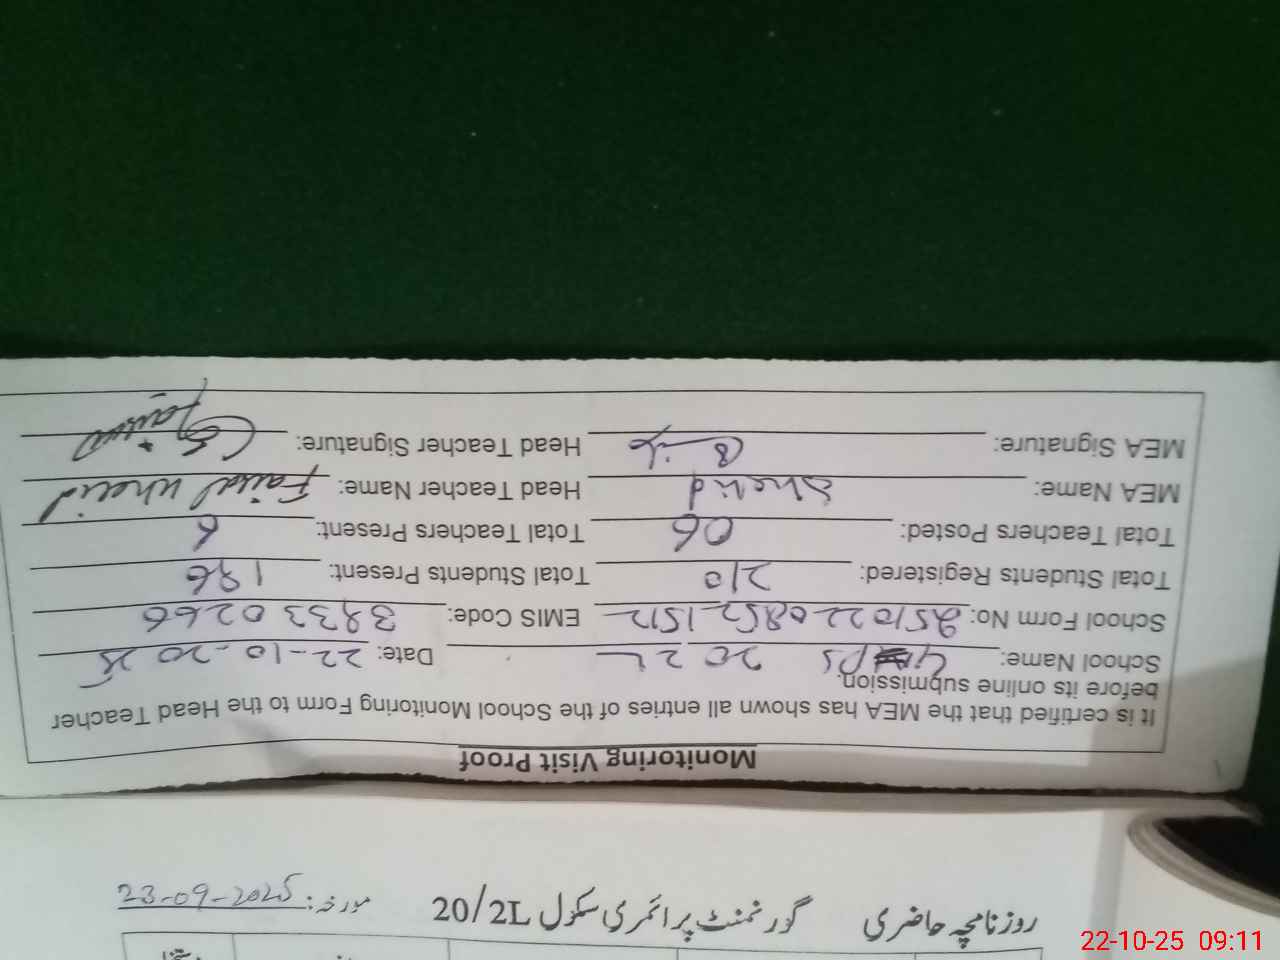 Monitoring Visit Proof
It is certified that the MEA has shown all entries of the School Monitoring Form to the Head Teacher
before its online submission.
School Name: GPS 20 2L Date: 22-10-2025
School Form No: 25102208521512 EMIS Code: 38330266
Total Students Registered: 210 Total Students Present: 196
Total Teachers Posted: 06 Total Teachers Present: 6
MEA Name: Shahid Head Teacher Name: Faisal
MEA Signature: Head Teacher Signature:
روزنامچہ حاضری گورنمنٹ پرائمری سکول 20/2L مورخہ: 23-09-2025
22-10-25 09:11